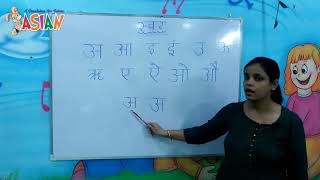 ASIAN
स्वर
अ आ इ ई उ ऊ
ऋ ए ऐ ओ औ
अ अ